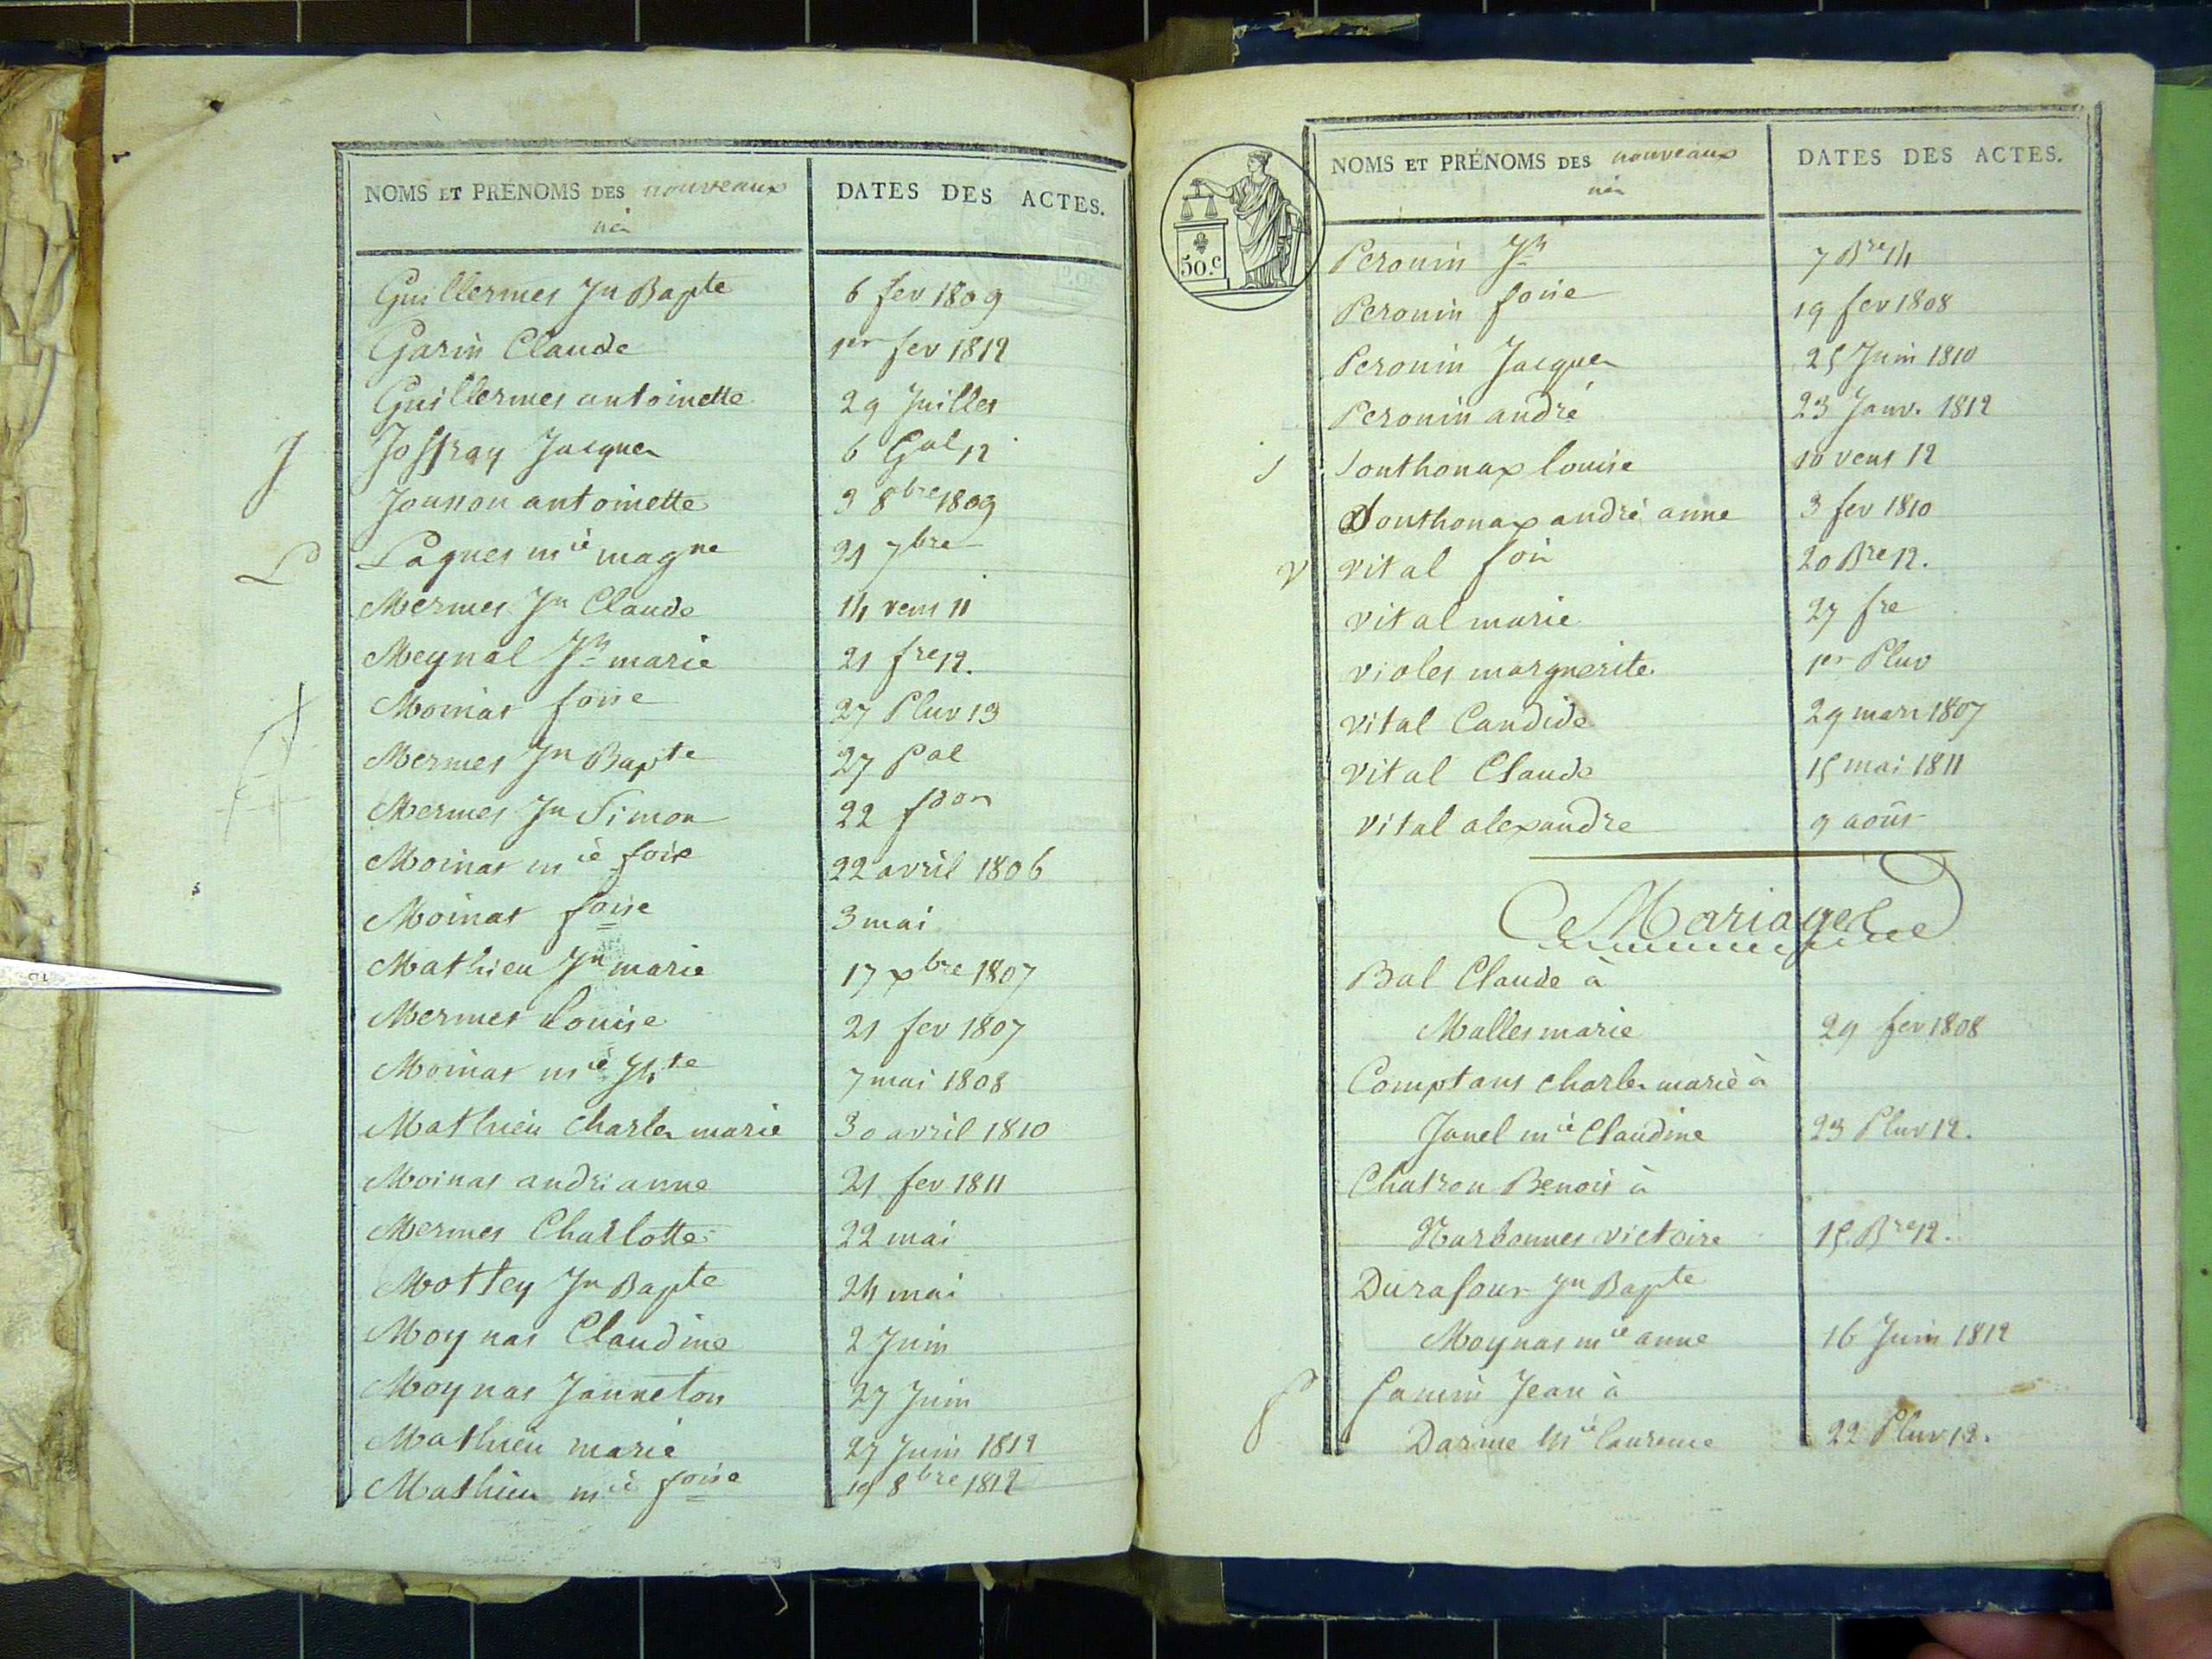 NOMS ET PRÉNOMS DES nouveaux
nés
DATES DES ACTES.
Guillermes Jn Bapte 6 fev 1809
Garin Claude 1er fev 1812
Guillermes antoinette 29 Juilles
J Joffray Jacques 6 Gal 12
Jousson antoinette 3 8bre 1809
L Lagnes mie magne 21 7bre
Mermes Jn Claude 14 vens 11
Meynal Jh marie 21 fre 12.
Moinas foise 27 Pluv 13
Mermes Jn Bapte 27 Pal
Mermes Jn Simon 22 fdor
Moinas mie foise 22 avril 1806
Moinas foise 3 mai
Mathieu Jn marie 17 xbre 1807
Mermes Louise 21 fev 1807
Moinas mie 7 mai 1808
Mathieu Charles marie 30 avril 1810
Moinas andrianne 21 fev 1811
Mermes Charlotte 22 mai
Mottey Jn Bapte 24 mai
Moynas Claudine 2 Juin
Moynas Janneton 27 Juin
Mathieu marie 27 Juin 1812
Mathieu mie foise 19 8bre 1812
50.c
NOMS ET PRÉNOMS DES nouveaux
nés
DATES DES ACTES.
Peronin Jh 7 Bre 14
Peronin foise 19 fev 1808
Peronin Jacques 25 Juin 1810
Peronin andré 23 Janv. 1812
S Sonthonax louise 10 vens 12
Sonthonax andré anne 3 fev 1810
V vital fois 20 Bre 12.
vital marie 27 fre
violes marguerite 1er Pluv
vital Candide 29 mars 1807
vital Claude 15 mai 1811
vital alexandre 9 aoûs
Mariages
Bal Claude à
Malles marie 29 fev 1808
Comptans charles marie à
Janel mie Claudine 23 Pluv 12.
Chatron Benois à
Narbonnes victoire 15 Bre 12.
Durafour Jn Bapte
Moynas mie anne 16 Juin 1812
Jean à
Darme Mie laurence 22 Pluv 12.